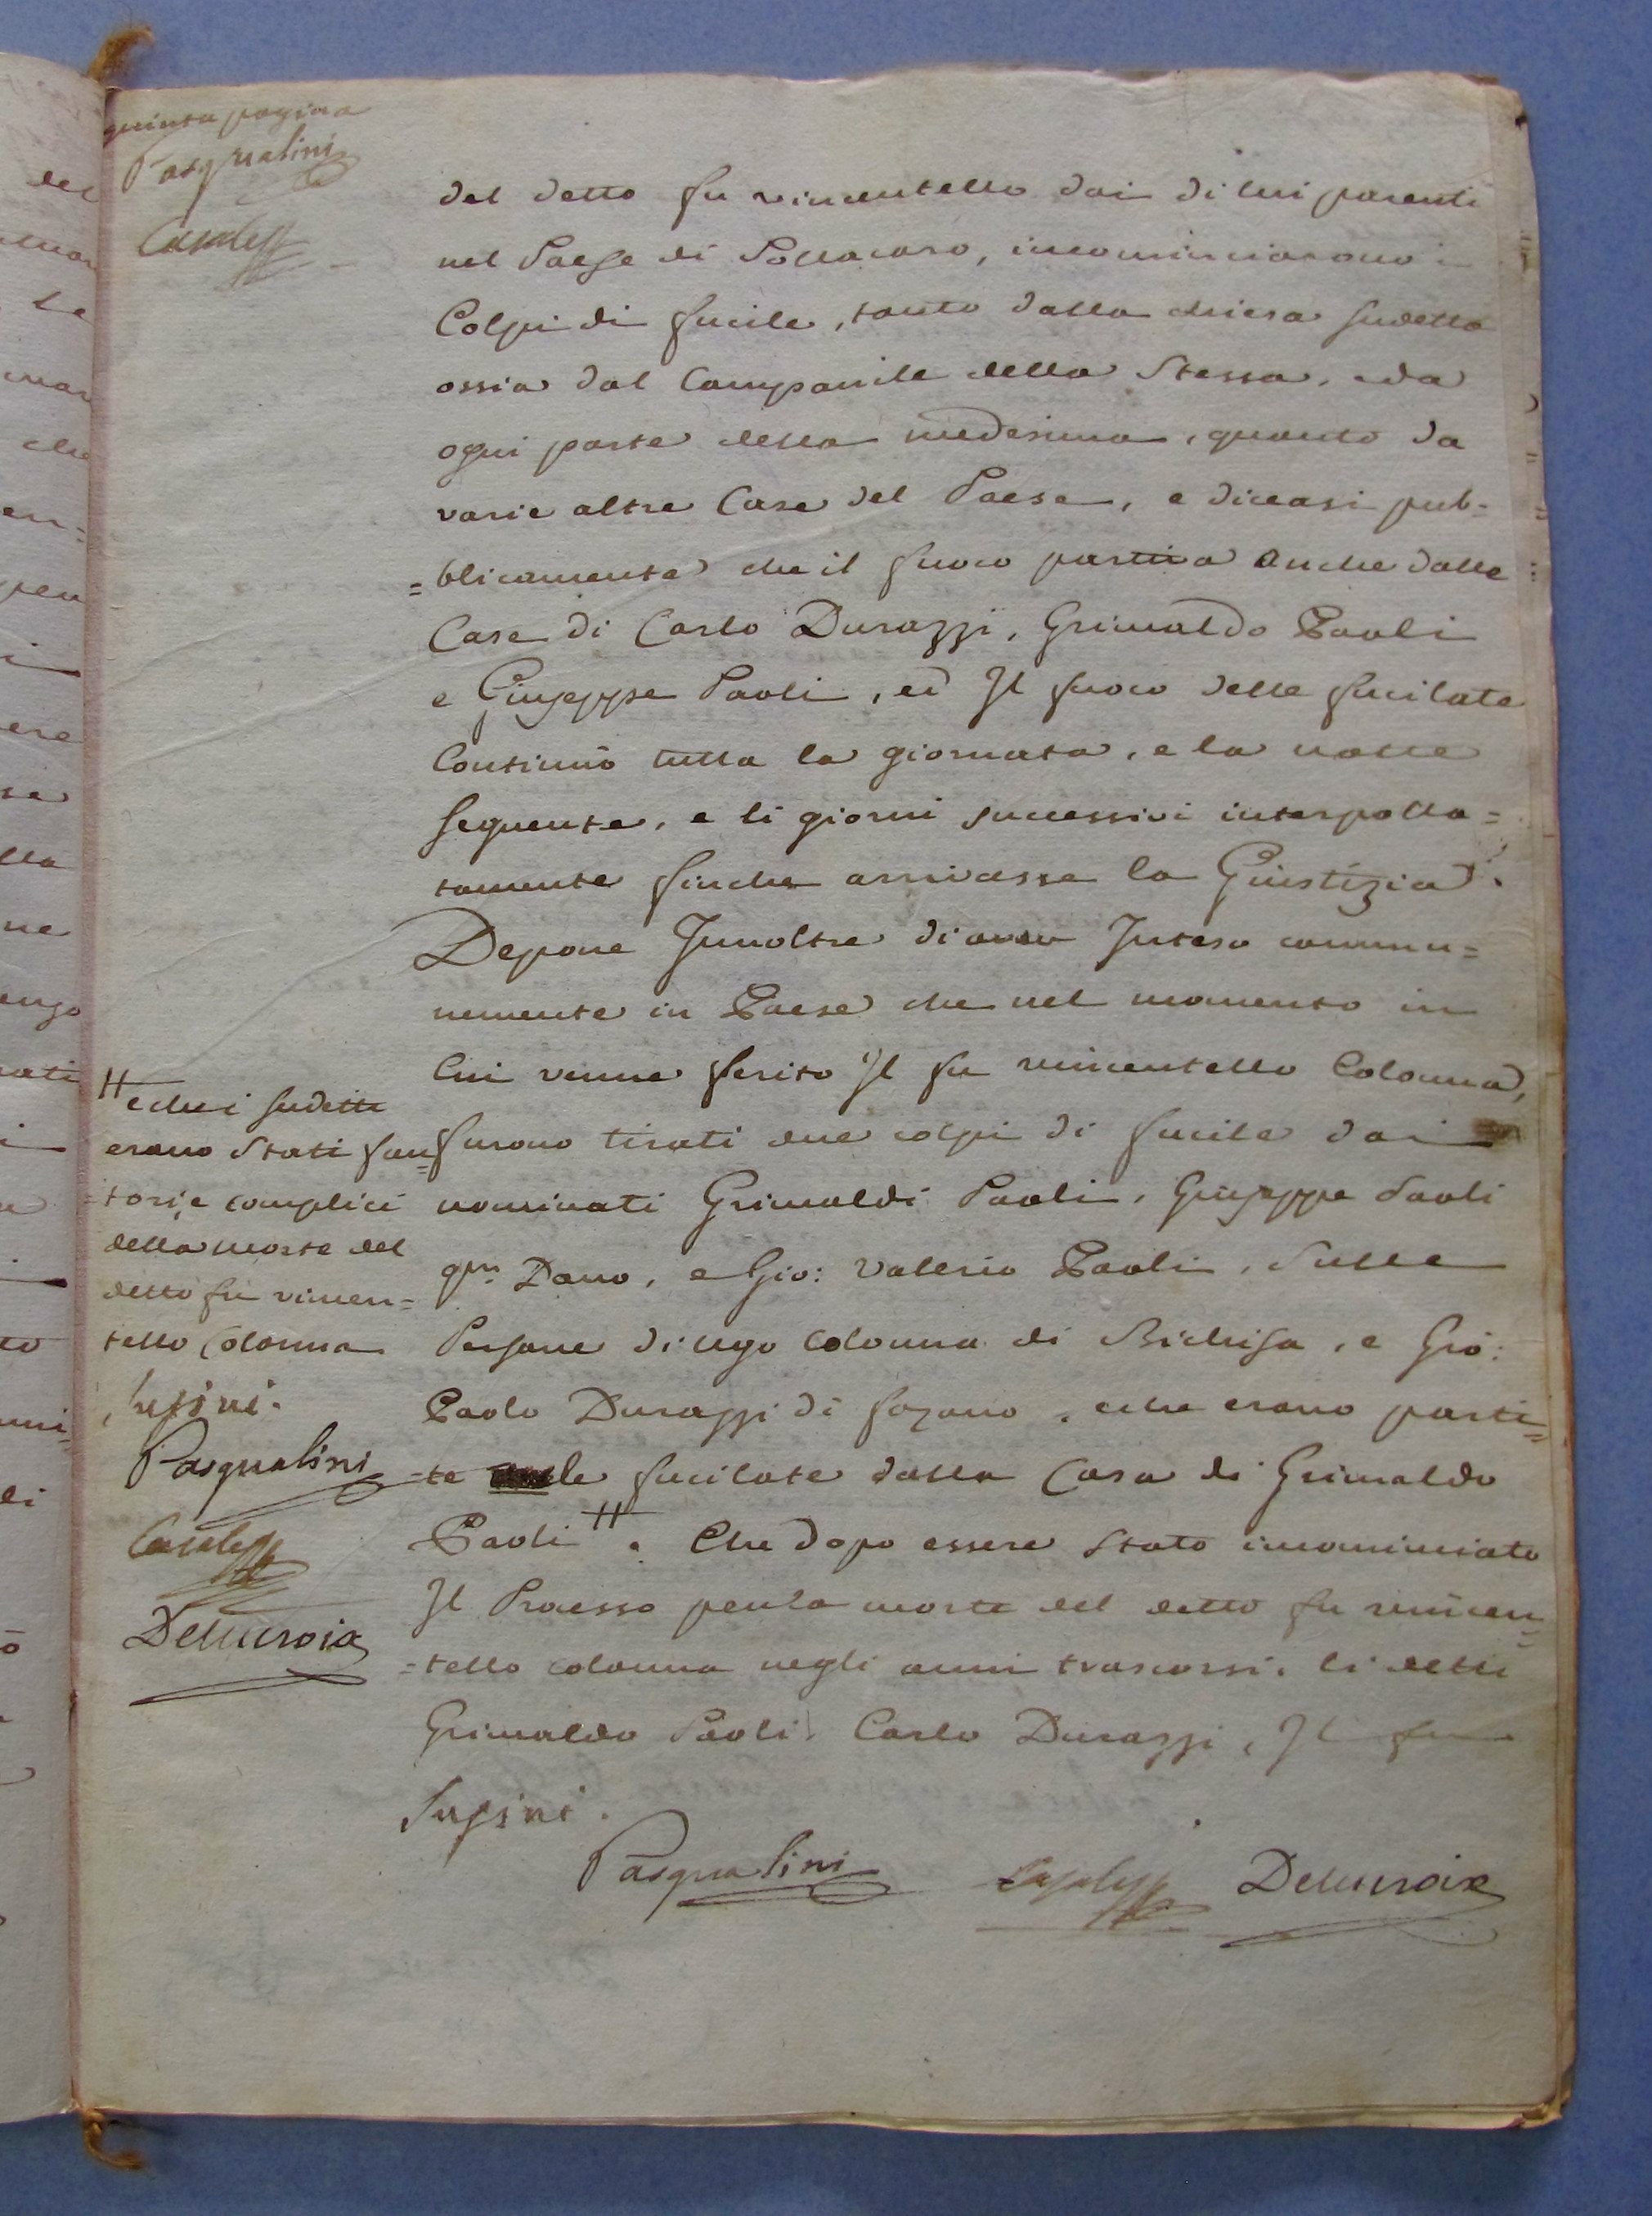 quinta pagina
Pasqualini
Casale
del detto fu vincentello dai di lui parenti
nel Paese di Sollacaro, incominciarono i
Colpi di fucile, tanto dalla chiesa sudetta
ossia dal Campanile della Stessa, e da
ogni parte della medesima, quanto da
varie altre Case del Paese, e diceasi pub=
=blicamente che il fuoco partia anche dalle
Case di Carlo Durazzi, Grimaldo Paoli
e Giuseppe Paoli, ed Il fuoco delle fucilate
Continuò tutta la giornata, e la notte
seguente, e li giorni successivi interpolla=
tamente finche arrivasse la Giustizia.
Depone Innoltre di aver Inteso commu=
nemente in Paese che nel momento in
Cui venne ferito Il fu vincentello Colonna,
furono tirati due colpi di fucile dai
nominati Grimaldi Paoli, Giuseppe Paoli
qm Dano, e Gio: Valerio Paoli, Sulle
Persone di ugo Colonna di Bichisa, e Gio:
Paolo Durazzi di fozano, e che erano parti=
=te le fucilate dalla Casa di Grimaldo
Paoli #. Che dopo essere stato incominciato
Il Processo per la morte del detto fu vincen=
=tello colonna negli anni trascorsi, li detti
Grimaldo Paoli, Carlo Durazzi, Il fu
Susini.
Pasqualini Casale Delucroix
# e che i sudetti
erano Stati fau=
tori, e complici
della morte del
detto fu vincen=
tello Colonna
Susini.
Pasqualini
Casale
Delucroix